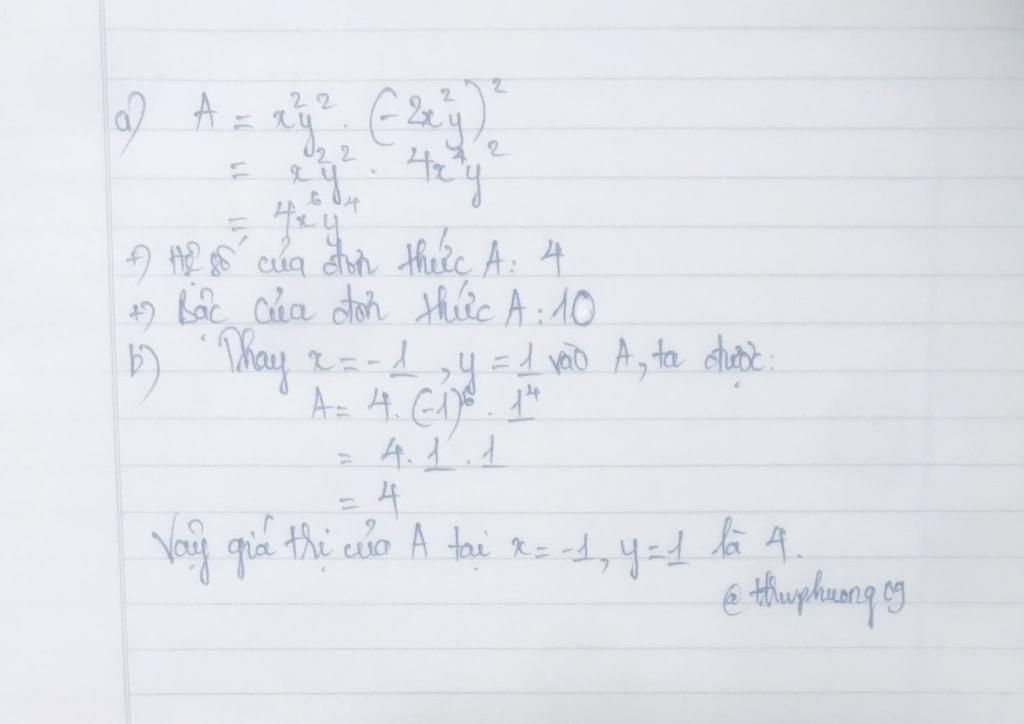 a) A = x²y² . (-2x²y)²
= x²y² . 4x⁴y²
= 4x⁶y⁴
+) Hệ số của đơn thức A: 4
+) Bậc của đơn thức A: 10
b) Thay x = -1, y = 1 vào A, ta được:
A = 4. (-1)⁶ . 1⁴
= 4. 1 . 1
= 4
Vậy giá trị của A tại x = -1, y = 1 là 4.
@thuphuong09